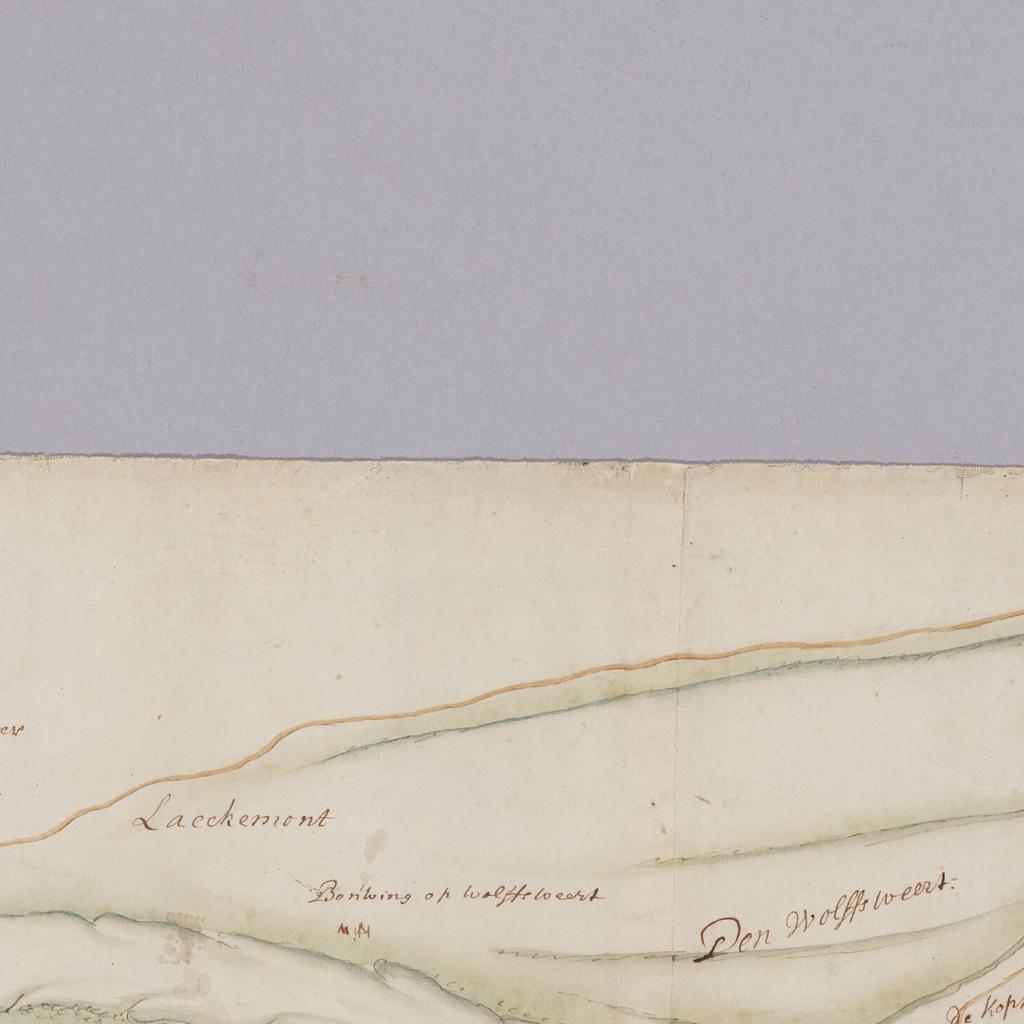 Laeckemont
Bouwing op wolffsweert
Den Wolffsweert.